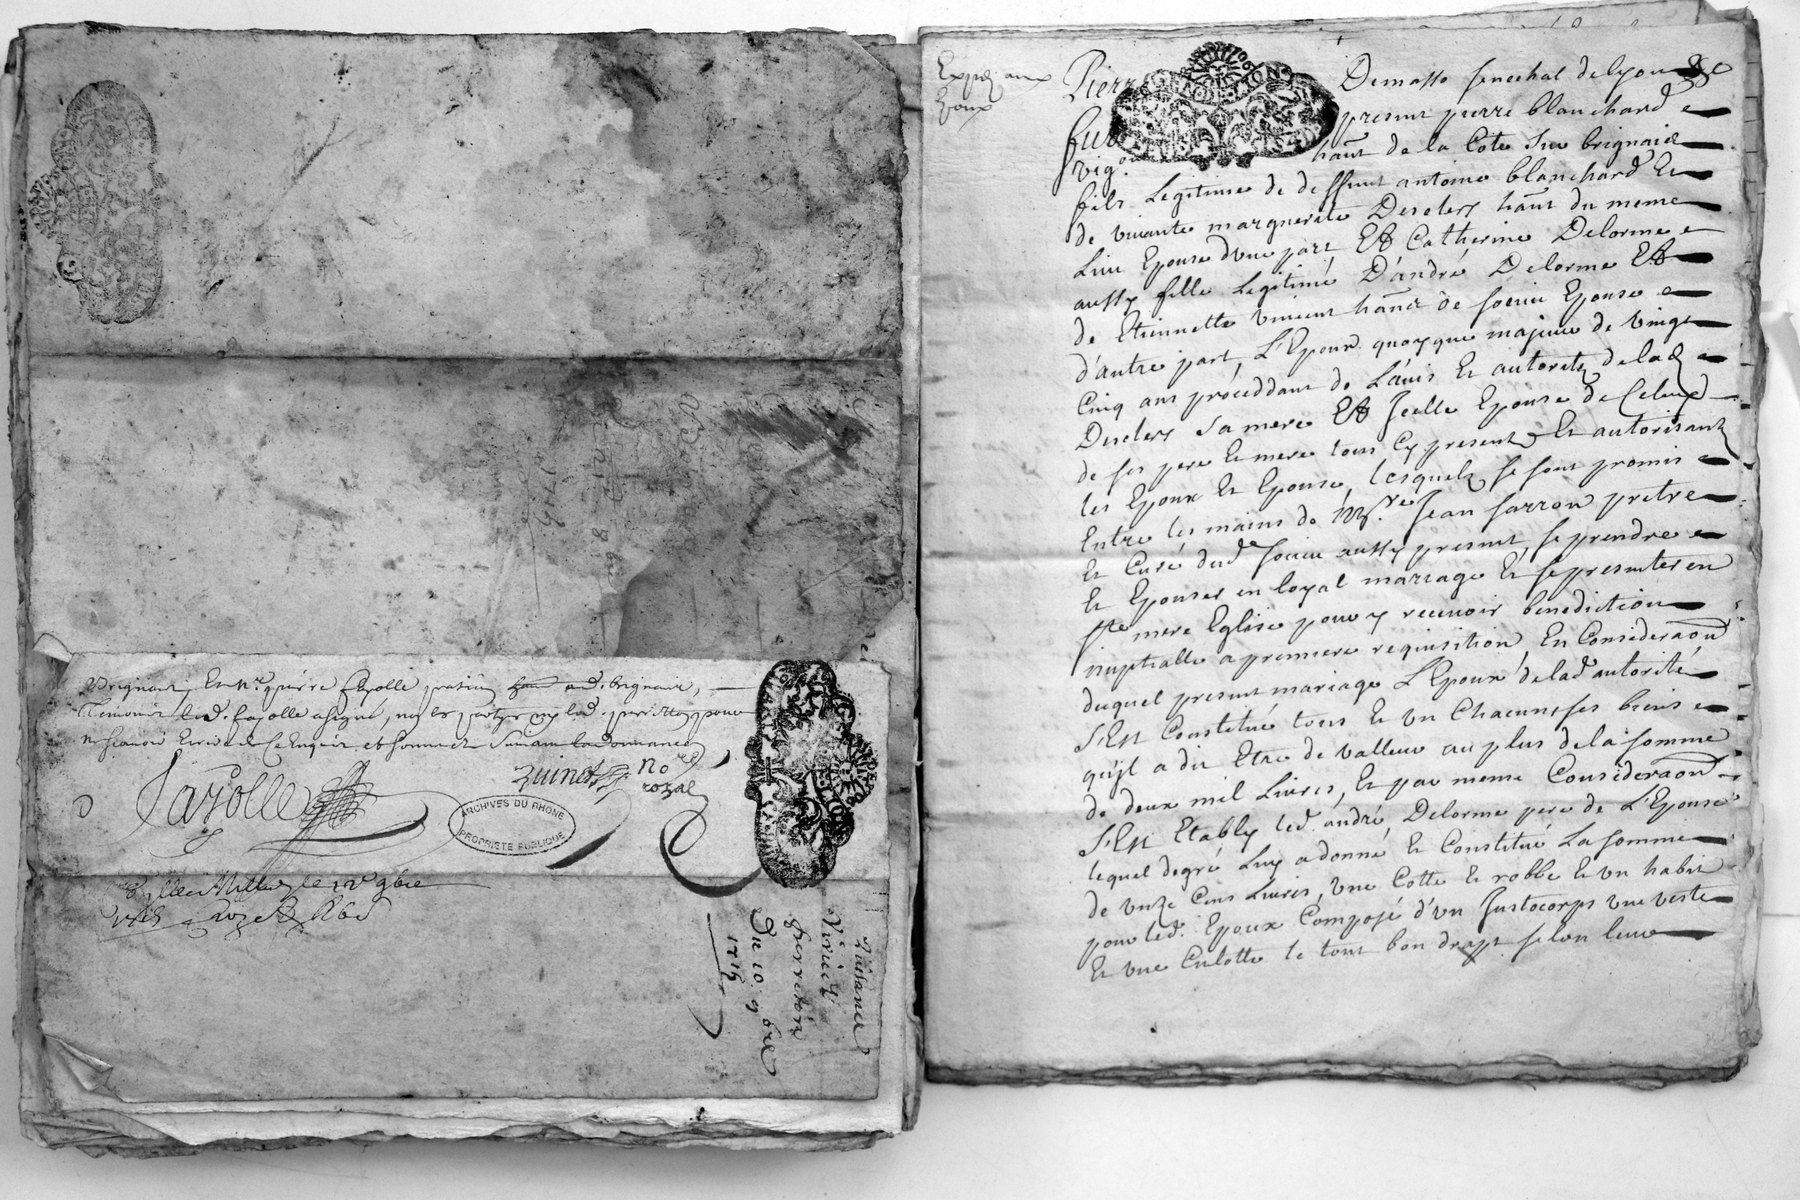 Brignais, Et Mre pierre fayolle praticien aud. brignais,
led. fayolle a signé, non les parties
Fayolle
No.re
royal
ARCHIVES DU RHONE
PROPRIETE PUBLIQUE
Du 10 9bre
1715
Exped aux
Epoux
Pierre Demasso senechal de lyon &c
presant pierre blanchard
vig.on hant de la Cote sur brignais
fils Legitime de deffunt antoine blanchard Et
de vivante marguerite Desclers hant du meme
Lieu Epoux d'une part Et Catherine Delorme
aussy fille Legitime D'andré Delorme Et
de Etiennette vincent hant de soucieu Epouse
d'autre part, L'Epoux quoyque majeur de vingt
Cinq ans proceddant de L'avis Et autorité de lad
Desclers sa mere Et Icelle Epouse de Celuy
de ses pere Et mere tous Cy presents Et autorisant
les Epoux Et Epouse, lesquels se sont promis
Entre les mains de Mre Jean sarron prêtre
Et Curé dud soucieu aussy presant, se prendre
Et Epouser en loyal mariage Et se presenter en
ste mere Eglise pour y recevoir benediction
nuptialle a premiere requisition, En Consideraon
duquel presant mariage L'Epoux de lad autorité
s'Est Constitué tous Et un Chacuns ses biens
qu'jl a dit Etre de valleur au plus de la somme
de deux mil Livres, Et par meme Consideraon
s'Est Etably led. andré Delorme pere de L'Epouse
lequel degré Luy a donné Et Constitué La somme
de onze Cens Livres, une Cotte Et robbe Et un habit
pour led. Epoux Composé d'un Justocorps une veste
Et une Culotte le tout bon drapt selon leur